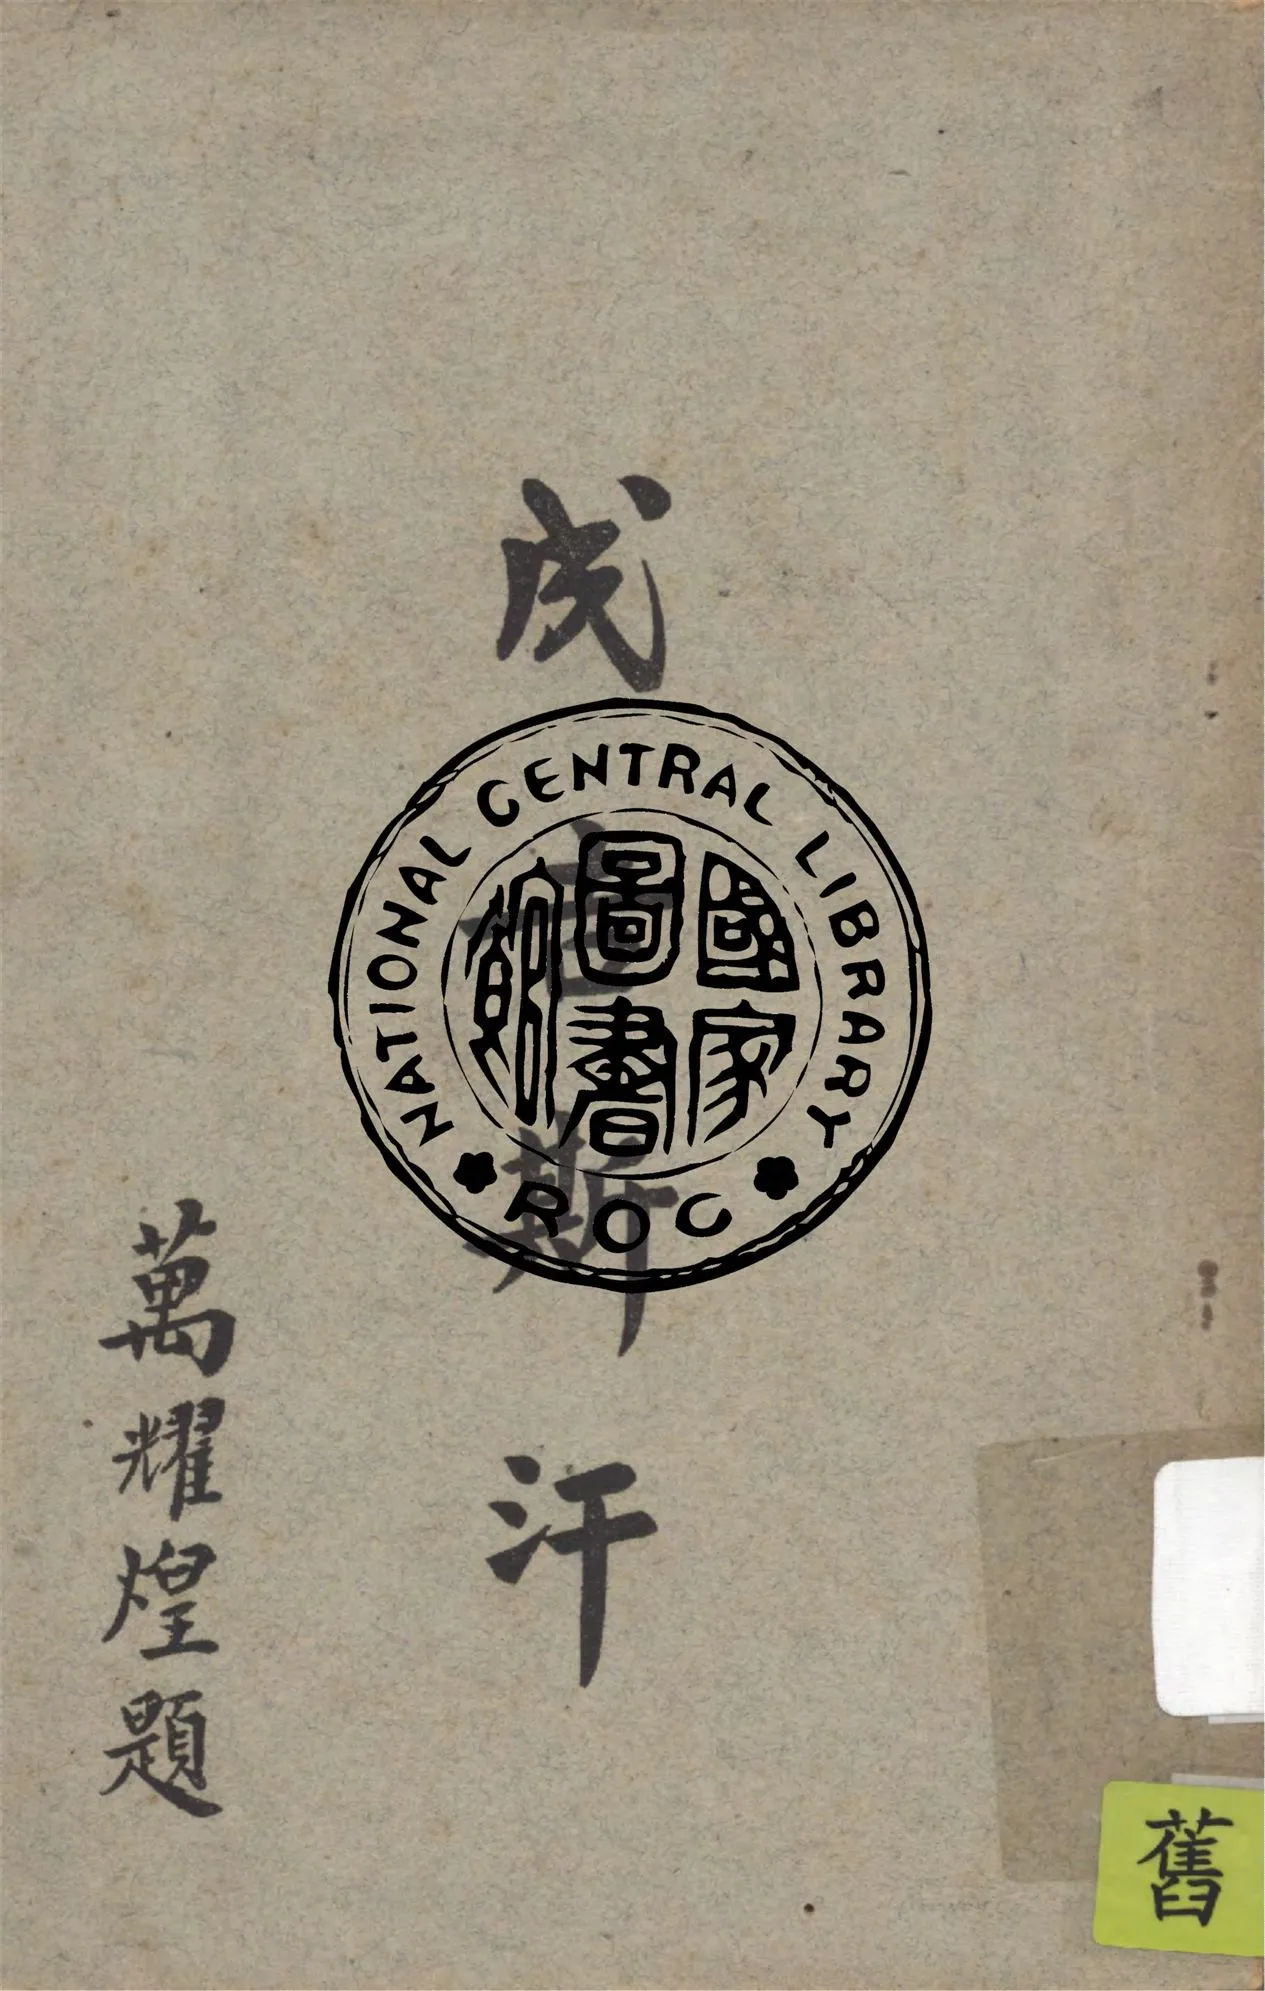 成吉斯汗
萬耀煌題
NATIONAL CENTRAL LIBRARY
國家圖書館
ROC
舊